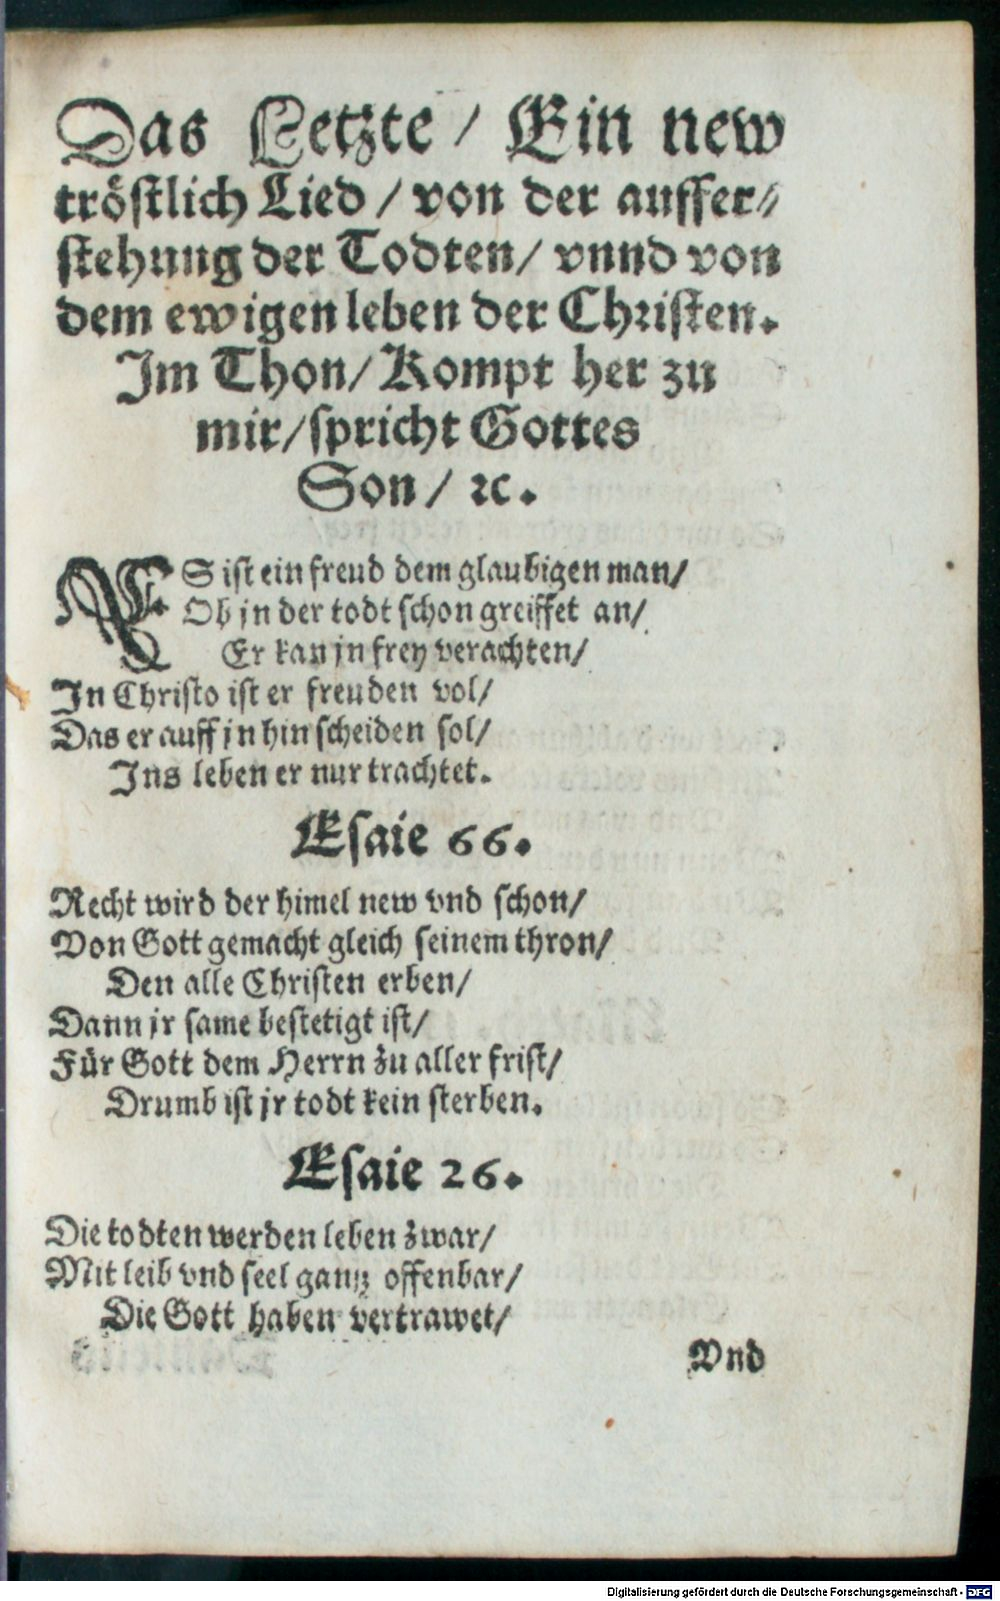 Das Letzte / Ein new
tröstlich Lied / von der auffer⸗
stehung der Todten / vnnd von
dem ewigen leben der Christen.
Im Thon / Kompt her zu
mir / spricht Gottes
Son / ꝛc.
ES ist ein freud dem glaubigen man /
Ob jn der todt schon greiffet an /
Er kan jn frey verachten /
In Christo ist er freuden vol /
Das er auff jn hin scheiden sol /
Ins leben er nur trachtet.
Esaie 66.
Recht wird der himel new vnd schon /
Von Gott gemacht gleich seinem thron /
Den alle Christen erben /
Dann jr same bestetigt ist /
Für Gott dem Herrn zu aller frist /
Drumb ist jr todt kein sterben.
Esaie 26.
Die todten werden leben zwar /
Mit leib vnd seel gantz offenbar /
Die Gott haben vertrawet /
Vnd
Digitalisierung gefördert durch die Deutsche Forschungsgemeinschaft - DFG